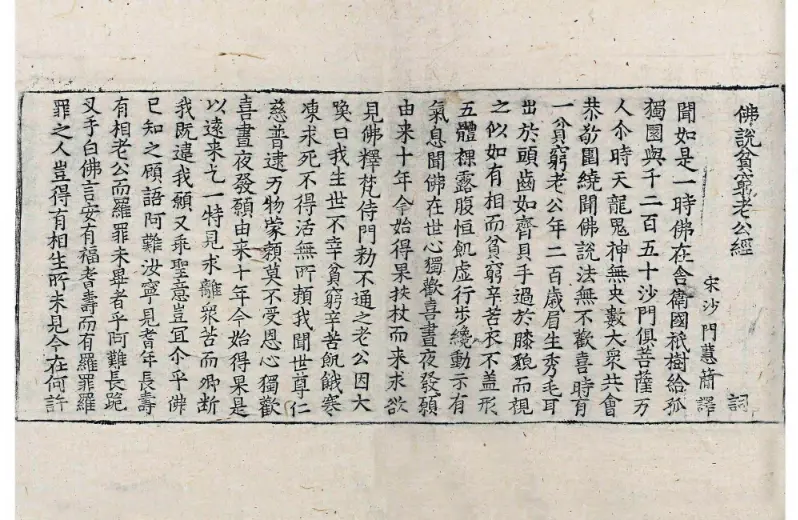 佛說貧窮老公經 詞
宋沙門慧簡譯
聞如是一時佛在舍衛國祇樹給孤
獨園與千二百五十沙門俱菩薩万
人尒時天龍鬼神無央數大衆共會
恭敬圍繞聞佛說法無不歡喜時有
一貧窮老公年二百歲眉生秀毛耳
出於頭齒如齊貝手過於膝貌而視
之似如有相而貧窮辛苦衣不盖形
五體裸露腹恒飢虛行步纔動示有
氣息聞佛在世心獨歡喜晝夜發願
由来十年今始得果扶杖而来求欲
見佛釋梵侍門勑不通之老公因大
喚曰我生世不幸貧窮辛苦飢餓寒
凍求死不得活無所頼我聞世尊仁
慈普逮万物蒙頼莫不受恩心獨歡
喜晝夜發願由来十年今始得果是
以遠来乞一特見求離衆苦而卿断
我既違我願又乖聖意豈冝尒乎佛
已知之顧語阿難汝寧見耆年長壽
有相老公而羅罪未畢者乎阿難長跪
叉手白佛言安有福耆壽而有羅罪羅
罪之人豈得有相生所未見今在何許